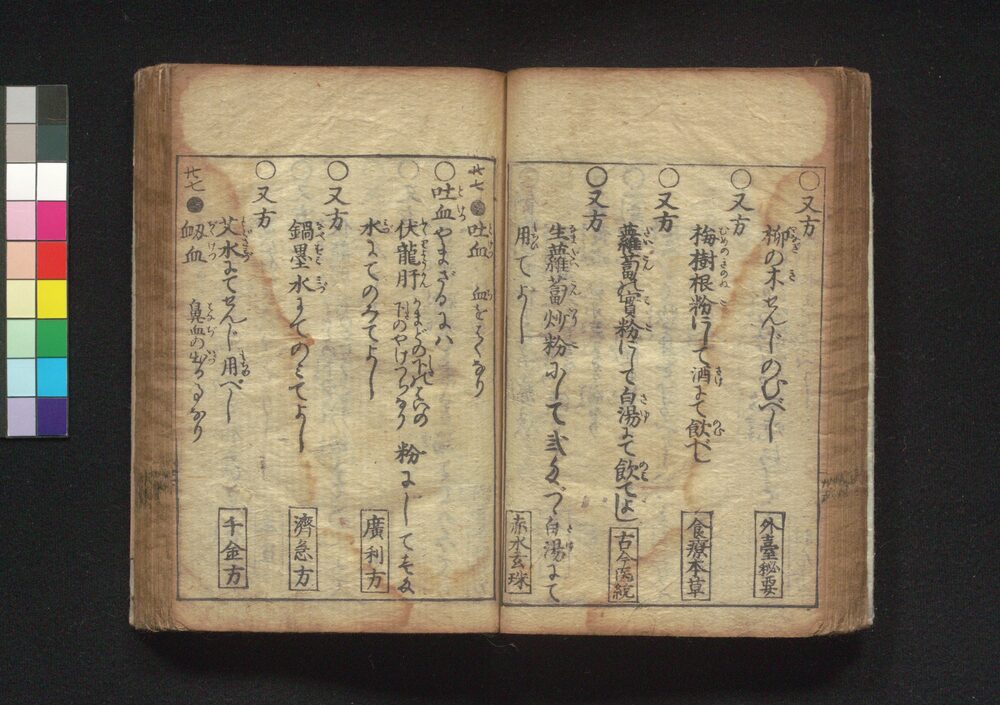 ○又方
柳の木せんじのむべし
外臺秘要
○又方
梅樹根粉にして酒にて飲べし
食療本草
○又方
蘿蔔實粉にして白湯にて飲てよし
古今医統
○又方
生蘿蔔炒粉にして弐匁づゝ白湯にて
用てよし
赤水玄珠
廿七 吐血 血をはくなり
○吐血やまざるには
伏龍肝 かまどの下の 下のやけつちなり 粉にして
水にてのみてよし
廣利方
○又方
鍋墨水にてのみてよし
濟急方
○又方
艾水にてせんじ用べし
千金方
廿七 衂血 鼻血の出るなり